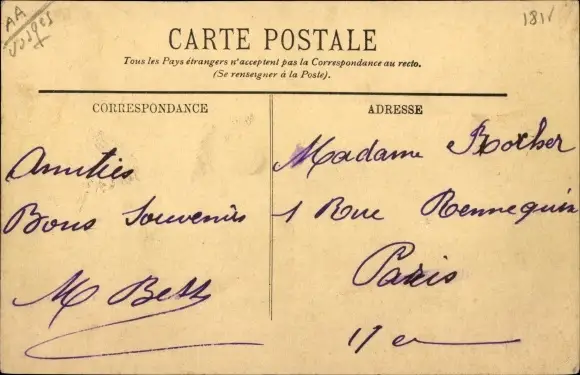 AA
Vosges
181V
CARTE POSTALE
Tous les Pays étrangers n'acceptent pas la Correspondance au recto.
(Se renseigner à la Poste).
CORRESPONDANCE
Amitiés
Bons Souvenirs
M
ADRESSE
Madame Rocher
1 Rue Rennequin
Paris
17 e